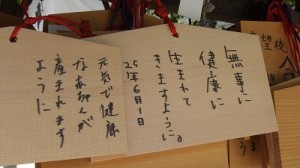 無事に
健康に
生まれて
きますように。
25年6月1日
元気で健康
な赤ちゃんが
産まれます
ように